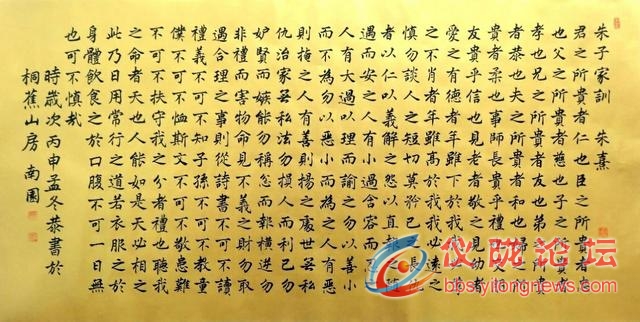 朱子家訓 朱熹
君之所貴者仁也臣之所貴者忠
也父之所貴者慈也子之所貴者
孝也兄之所貴者友也弟之所貴
者恭也夫之所貴者和也婦之所
貴者柔也事師長貴乎禮也交朋
友貴乎信也見老者敬之見幼者
愛之有德者年雖下於我我必尊
之不肖者年雖高於我我必遠之
慎勿談人之短切莫矜己之長仇
者以仁以義解之怨以直報之隨
遇而安之人有小過含容而忍之
人有大過以理而諭之勿以善小
而不為勿以惡小而為之人有惡
則掩之人有善則揚之處世無私
仇治家無私法勿損人而利己勿
妒賢而嫉能勿稱忿而報橫逆勿
非禮而害物命見不義之財勿取
遇合理之事則從詩書不可不讀
禮義不可不知子孫不可不教童
僕不可不恤斯文不可不敬患難
不可不扶守我之分者禮也聽我
之命者天也人能如是天必相之
此乃日用常行之道若衣服之於
身體飲食之於口腹不可一日無
也可不慎哉
時歲次丙申孟冬恭書於
桐蕉山房 南園
仪陇论坛
bbs.yilongnews.com